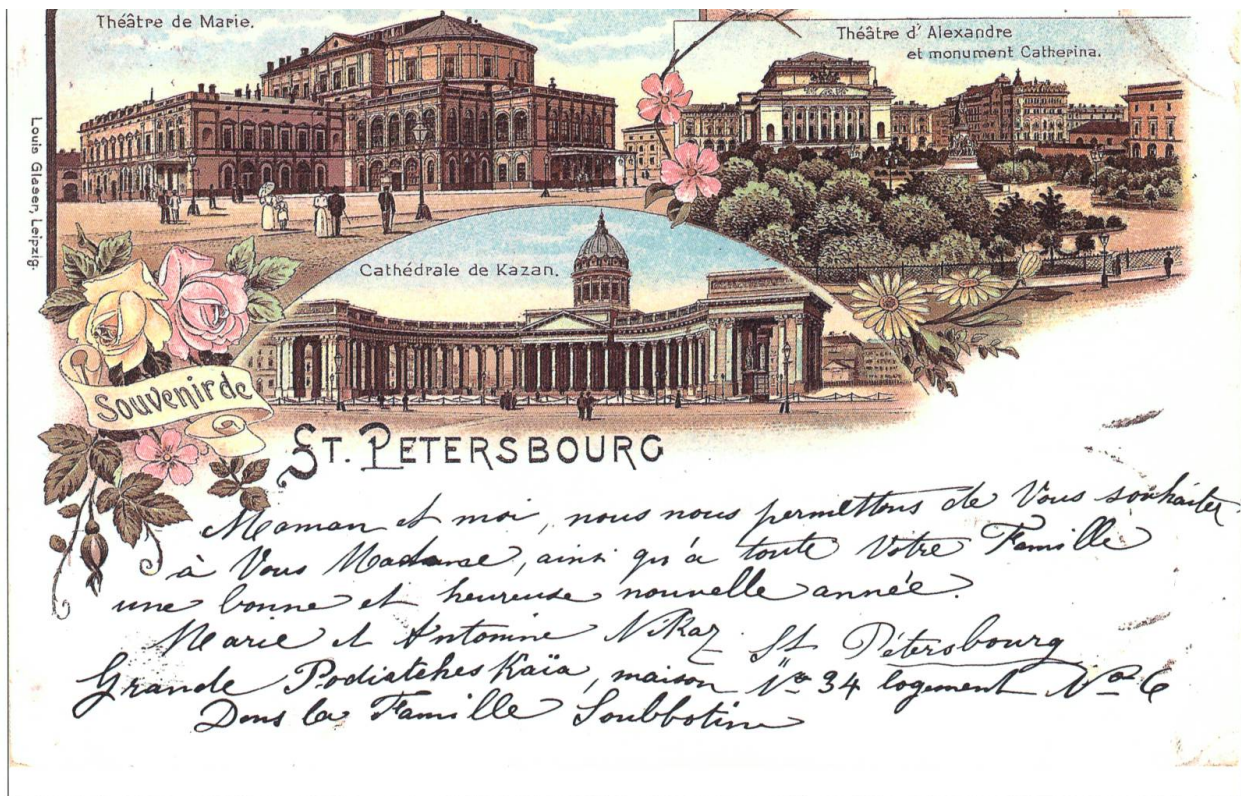 Théâtre de Marie.
Théâtre d'Alexandre
et monument Catherina.
Louis Glaser, Leipzig.
Cathédrale de Kazan.
Souvenir de
ST. PETERSBOURG
Maman et moi, nous nous permettons de Vous souhaiter
à Vous Madame, ainsi qu'à toute Votre Famille
une bonne et heureuse nouvelle année.
Marie et Antonine St Pétersbourg
Grande Podiatcheskaïa, maison No 34 logement No 6
Dans la Famille Soubbotine